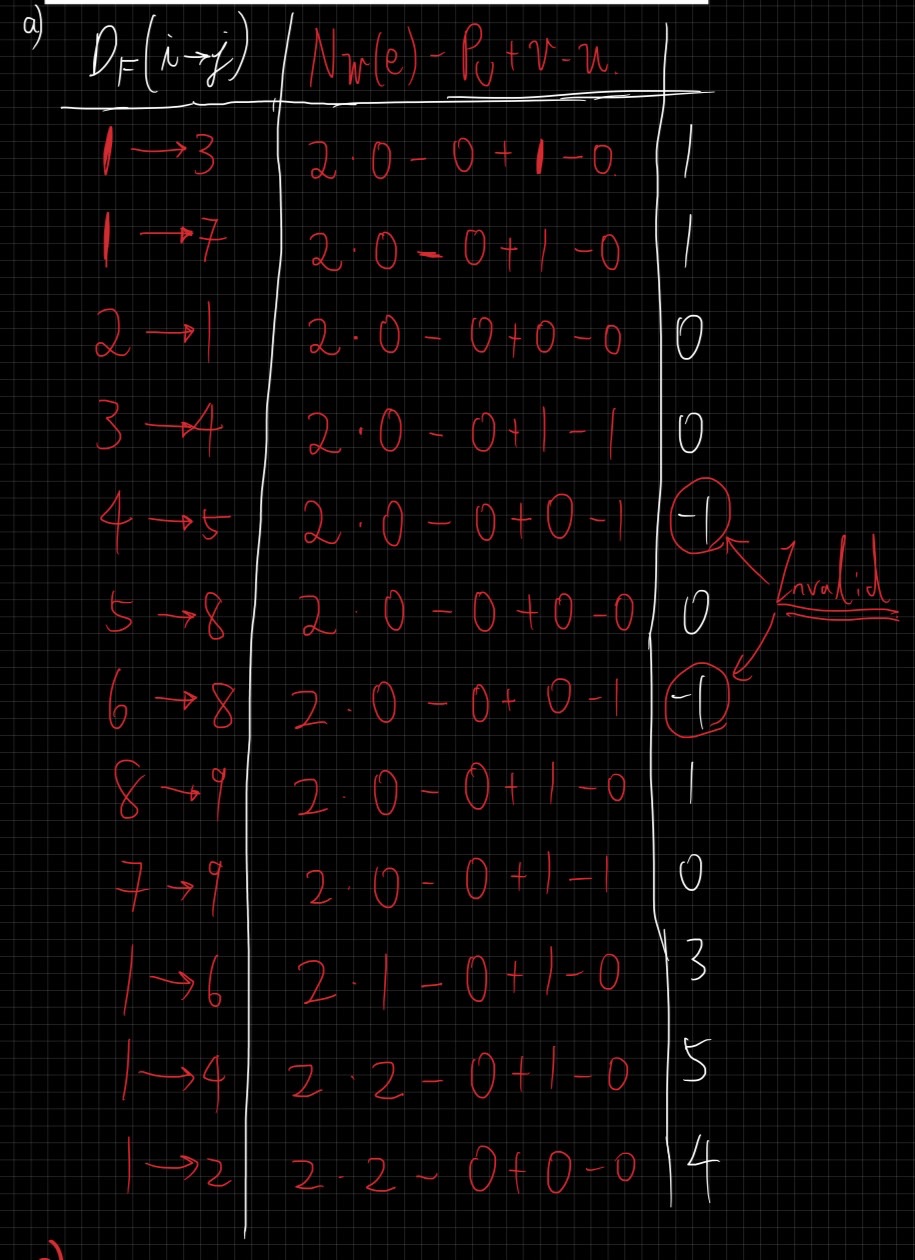 a)
D_F(i→j) N w(e) - P_U + v - u.
1 → 3 2·0 - 0 + 1 - 0. 1
1 → 7 2·0 - 0 + 1 - 0 1
2 → 1 2·0 - 0 + 0 - 0 0
3 → 4 2·0 - 0 + 1 - 1 0
4 → 5 2·0 - 0 + 0 - 1 -1
Invalid
5 → 8 2·0 - 0 + 0 - 0 0
6 → 8 2·0 - 0 + 0 - 1 -1
8 → 9 2·0 - 0 + 1 - 0 1
7 → 9 2·0 - 0 + 1 - 1 0
1 → 6 2·1 - 0 + 1 - 0 3
1 → 4 2·2 - 0 + 1 - 0 5
1 → 2 2·2 - 0 + 0 - 0 4